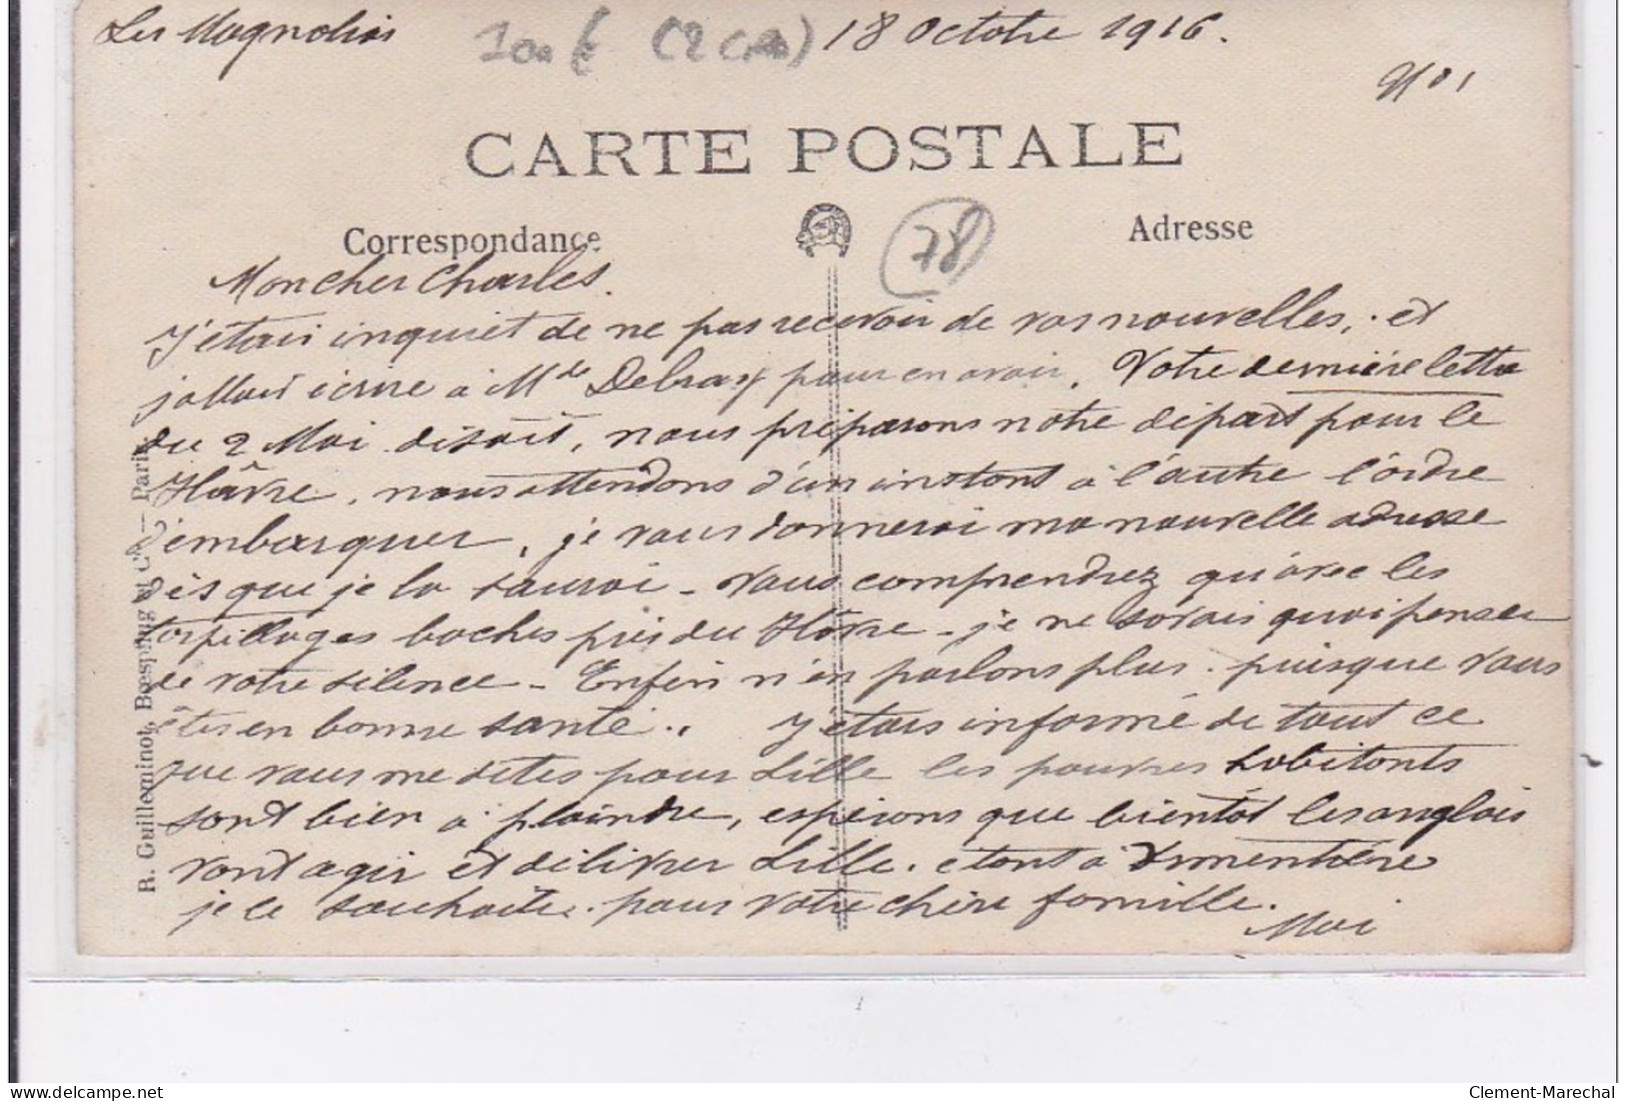 Les Magnolias 100 € (2 cartes) 18 Octobre 1916.
N° 1
CARTE POSTALE
Correspondance
78
Adresse
Mon cher Charles.
J'étais inquiet de ne pas recevoir de vos nouvelles, et
j'allais écrire à Mde Debray pour en avoir. Votre dernière lettre
du 2 Mai disait, nous préparons notre départ pour le
Hâvre, nous attendons d'un instant à l'autre l'ordre
d'embarquer, je vous donnerai ma nouvelle adresse
dès que je la saurai - Vous comprendrez qu'avec les
torpillages boches près du Hâvre - je ne savais quoi penser
de votre silence - Enfin n'en parlons plus. puisque vous
êtes en bonne santé.. J'étais informé de tout ce
que vous me dites pour Lille les pauvres habitants
sont bien à plaindre, espérons que bientôt les anglais
vont agir et délivrer Lille. étant à Armentière
je le souhaite. pour votre chère famille.
Moi
R. Guilleminot, Bœspflug et Cie — Paris.
Clement-Marechal